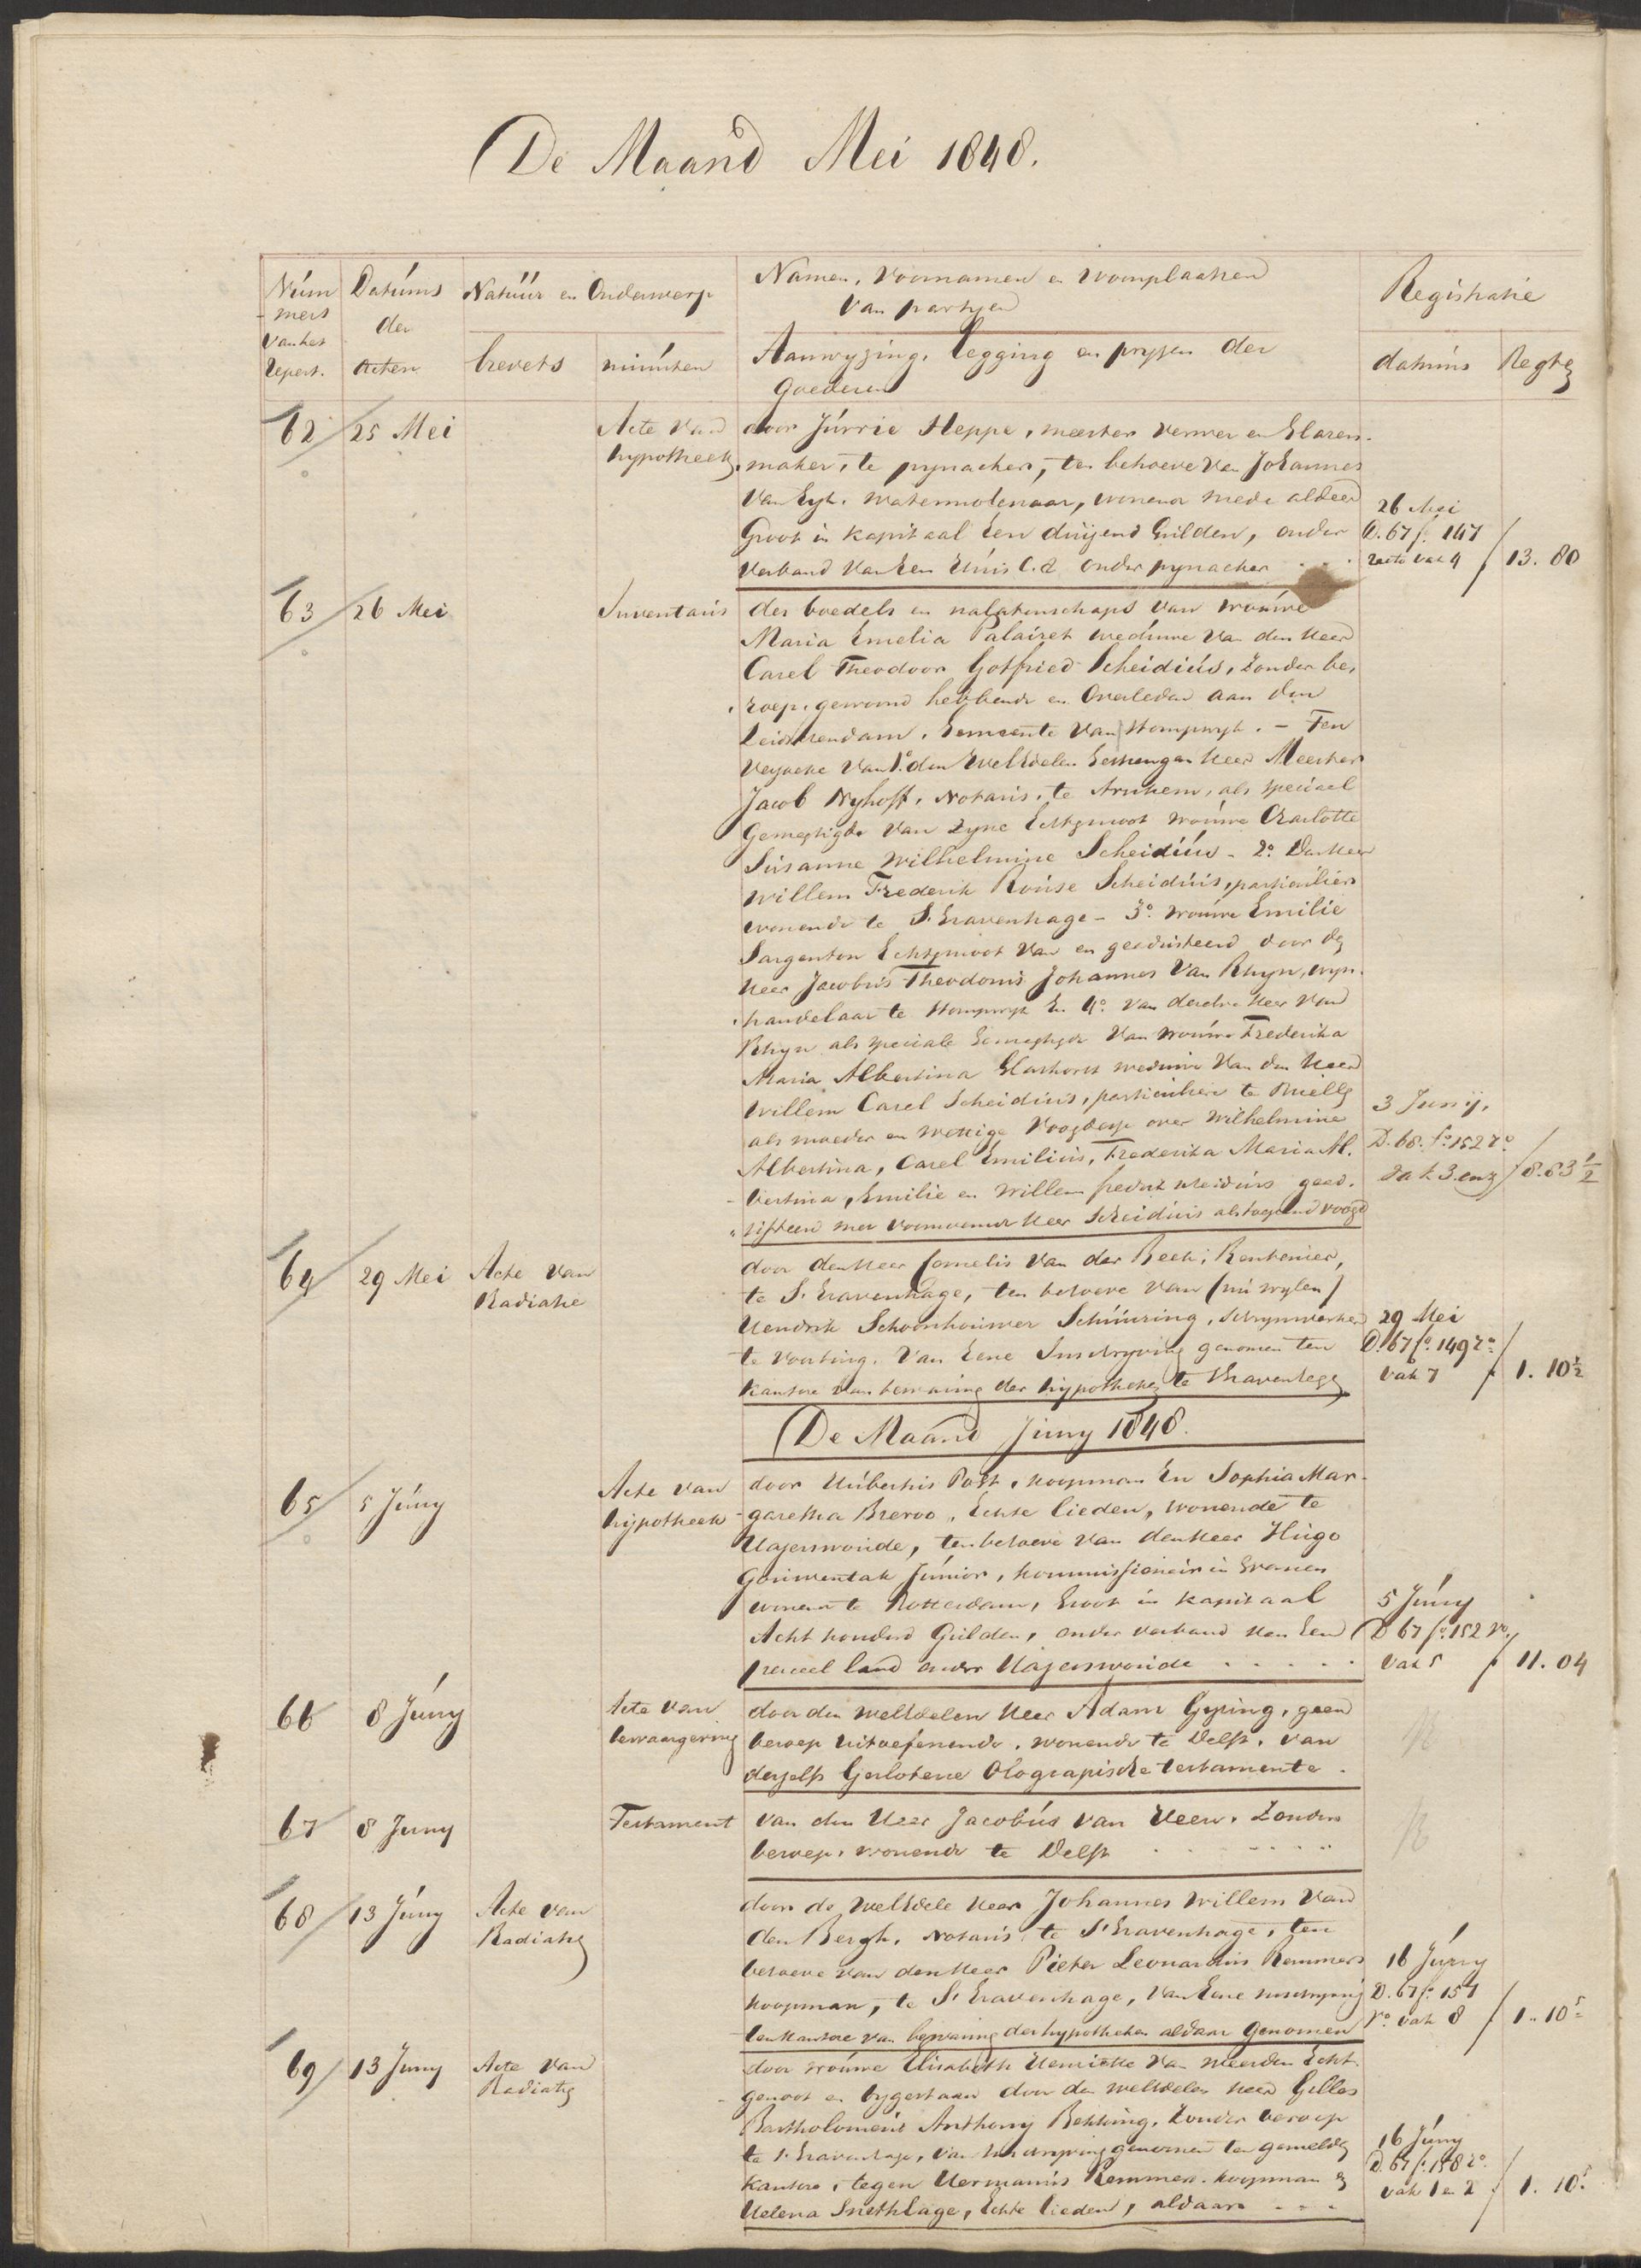 De Maand Mei 1848.
Núm
mers
van het
Repert.
Datúms
der
Acten
Natúúr en Onderwerp
brevets
minúten
Namen, Voornamen en Woonplaatsen
van partyen
Aanwyzing, Legging en pryzen der
Goederen
Registratie
datúms
Regten
62
25 Mei
Acte van
hypotheek
door Júrrie Heppe, meester Verwer en Glazen-
maker, te pynacker, ten behoeve van Johannes
van Eyk, watermolenaar, wonend mede aldaar
Groot in Kapitaal Een duizend Gúlden, onder
Verband van Een Húis C.A. onder pynacker . . .
26 Mei
D. 67 fo. 147
recto vak 4
13. 80
63
26 Mei
Inventaris
des boedels en nalatenschaps van Vroúwe
Maria Emelia Palairet weduwe van den Heer
Carel Theodoor Gotfried Scheidiús, Zonder be-
roep, gewoond hebbende en Overleden aan den
Leidschendam, Gemeente van Stompwyk. - Ten
Verzoeke van 1o. den WelEdelen Gestrengen Heer Meester
Jacob Nyhoff, Notaris, te Arnhem, als speciael
Gemagtigde van Zyne Echtgenoot Vroúwe Charlotte
Súsanne Wilhelmine Scheidiús - 2o. Den Heer
Willem Frederik Roúse Scheidiús, particúlier
wonende te S. Gravenhage - 3o. Vroúwe Emilie
Sargenton Echtgenoot van en geadsisteerd door de
Heer Jacobús Theodorús Johannes Van Rhyn, wyn-
handelaar te Stompwyk En 4o. van dezelve Heer van
Rhyn als speciale Gemagtigde van Vroúwe Frederika
Maria Albertina Hashorst weduwe van den Heer
Willem Carel Scheidiús, particuliere te Brielle
als moeder en Wettige Voogdesse over Wilhelmine
Albertina, Carel Emiliús, Frederika Maria Al-
bertina, Emilie en Willem fredrik Scheidiús gead-
sisteerd met voornoemde Heer Scheidiús als toeziend voogd
3 Junij,
D. 68. fo. 152 ro.
vak 3 enz
8.63½
64
29 Mei
Acte van
Radiatie
door den Heer Cornelis van der Beek, Rentenier,
te S. Gravenhage, ten behoeve van (nú wylen)
Hendrik Schoonhouwer Schúúring, Schrynwerker
te Voorburg, van Eene Inschryving genomen ten
kantore van bewaring der hypotheken te s'Gravenhage
29 Mei
D. 67 fo. 149 ro.
vak 7
1. 10½
De Maand Júny 1848.
65
5 Júny
Acte van
hypotheek
door Húbertus Post, koopman En Sophia Mar-
garetha Brero, Echte lieden, wonende te
Hazerswoúde, ten behoeve van den Heer Húgo
Júnior, kommissionair in Granen
wonend te Rotterdam, Groot in kapitaal
Acht honderd Gúlden, onder verband van Een
perceel land onder Hazerswoúde . . . . .
5 Júny
D 67 fo. 152 vo.
vak 5
11. 04
66
8 Júny
Acte van
bewaargeving
door den WelEdelen Heer Adam Gyzing, geen
beroep uitoefenende, wonende te Delft, van
deszelfs Geslotene Olograpische testamente .
67
8 Juny
Testament
van den Heer Jacobús van Veen, Zonder
beroep, wonende te Delft . . . . .
68
13 Júny
Acte van
Radiatie
door de WelEdele Heer Johannes Willem van
den Bergh, Notaris, te S'Gravenhage, ten
behoeve van den Heer Pieter Leonardús Remmers
koopman, te S'Gravenhage, van Eene inschryving
ten kantore van bewaring der hypotheken aldaar Genomen
16 Júny
D. 67 fo. 157
vo. vak 8
1. 10⁵
69
13 Juny
Acte van
Radiatie
door vroúwe Elisabeth Henriette van Weerden Echt-
genoot en bygestaan door den WelEdelen Heer Gilles
Bartholomeús Anthony Bekking, Zonder beroep
te s'Gravenhage, van Inschryving genomen ten gemelde
kantore, tegen Hermanús Remmers koopman &
Helena Snethlage, Echte lieden, aldaar . . .
16 Júny
D. 67 fo. 158 ro.
vak 1 en 2
1. 10⁵